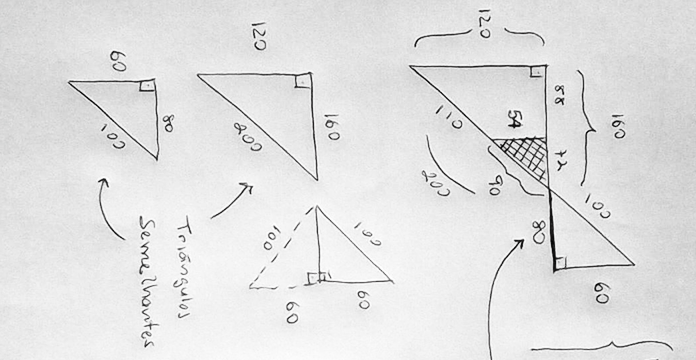 160
100
60
88
72
80
54
90
110
200
120
160
200
120
100
60
100
60
80
100
60
Triângulos
Semelhantes